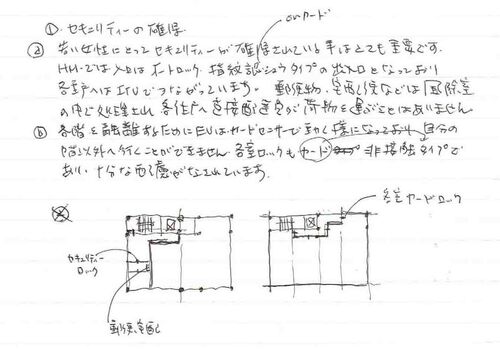 ① セキュリティーの確保
orカード
ⓐ 若い女性にとってセキュリティーが確保されている事はとても重要です。
HMでは入口はオートロック 指紋認ショウタイプの出入口となっており
各戸へはITVでつながっています。郵便物、宅配便などは
の中で処理され 各住戸へ直接配達員が荷物を運ぶことはありません。
ⓑ 各階を隔離するためにEVはカードセンサーで動く様になっており 自分の
階以外へ行くことができません。各室ロックもカード 非接触タイプで
あり 十分な配慮がなされています。
各室カードロック
セキュリティー
ロック
郵便、宅配